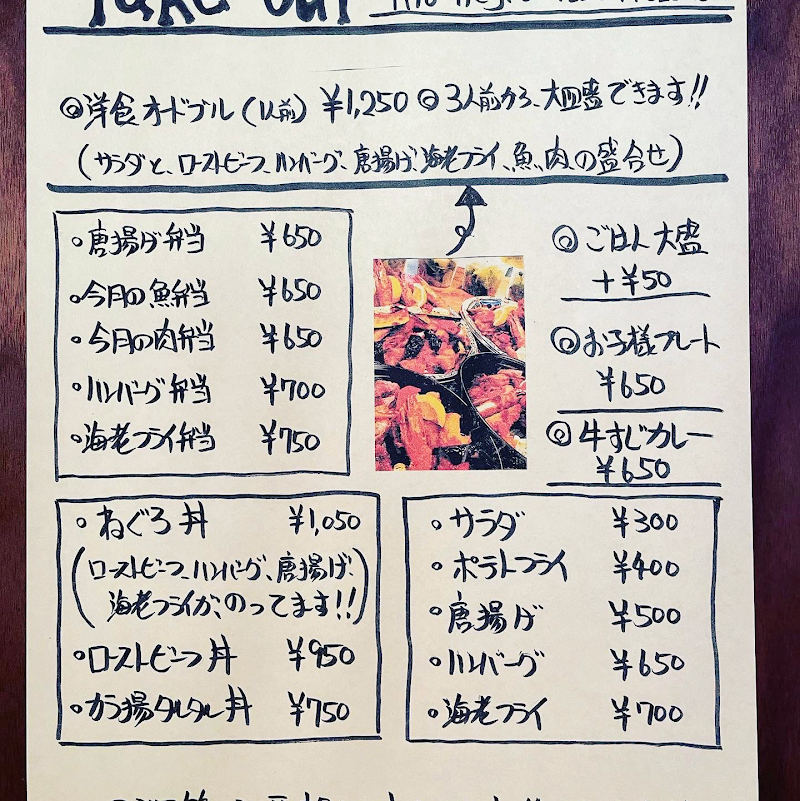 Take out
◎洋食オードブル(1人前) ¥1,250 ◎3人前から、大皿盛できます!!
(サラダと、ローストビーフ、ハンバーグ、唐揚げ、海老フライ、魚、肉、の盛合せ)
・唐揚げ弁当 ¥650
・今月の魚弁当 ¥650
・今月の肉弁当 ¥650
・ハンバーグ弁当 ¥700
・海老フライ弁当 ¥750
◎ごはん大盛
+¥50
◎お子様プレート
¥650
◎牛すじカレー
¥650
・ねぐろ丼 ¥1,050
(ローストビーフ、ハンバーグ、唐揚げ、
海老フライが、のってます!!)
・ローストビーフ丼 ¥950
・から揚タルタル丼 ¥750
・サラダ ¥300
・ポテトフライ ¥400
・唐揚げ ¥500
・ハンバーグ ¥650
・海老フライ ¥700